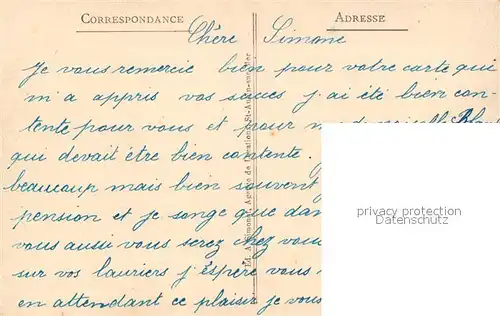 CORRESPONDANCE
ADRESSE
Chère Simone
Je vous remercie bien pour votre carte qui
m'a appris vos succes j'ai été bien con-
tente pour vous et pour
qui devait être bien contente.
beaucoup mais bien souvent
pension et je songe que dan
vous aussi vous serez chez vous
sur vos lauriers j'éspère vous
en attendant ce plaisir je vous
privacy protection
www.ansichtskartenversand.com